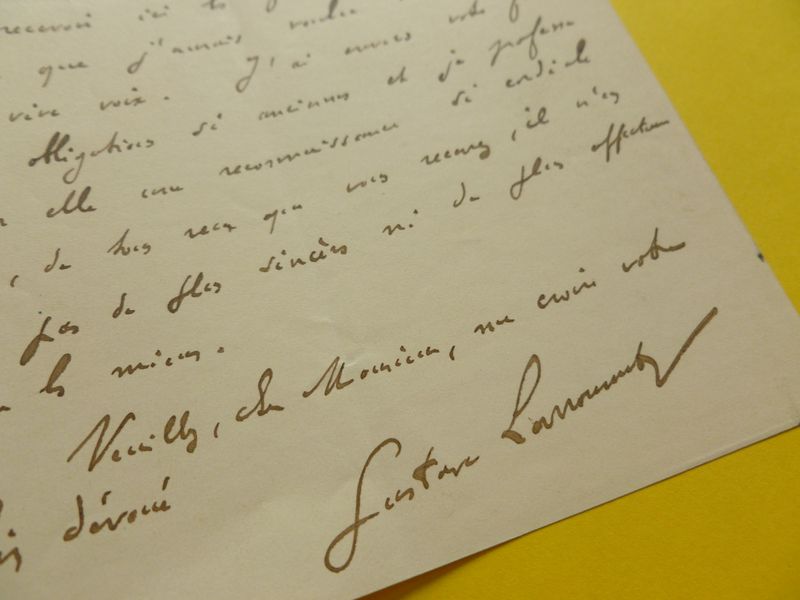 recevoir ici le
que j'aurais voulu
vive voix. J'ai envers votre
obligations si anciennes et je professe
elle une reconnaissance si cordiale
, de tous ceux que vous recevez, il n'es
pas de plus sincères ni de plus affectueux
les miens.
Veuillez, cher Monsieur, me croire votre
dévoué
Gustave Larroumet